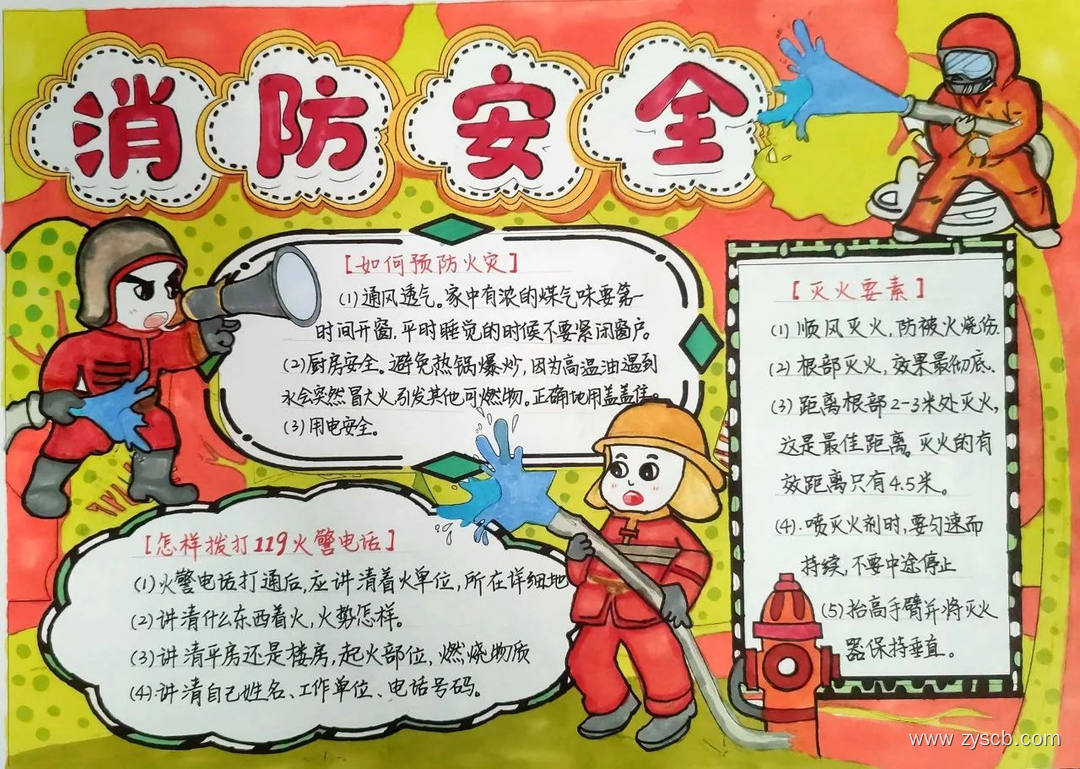 消防安全
【如何预防火灾】
(1)通风透气。家中有浓的煤气味要第一
时间开窗,平时睡觉的时候不要紧闭窗户。
(2)厨房安全。避免热锅爆炒,因为高温油遇到
火会突然冒大火,引发其他可燃物。正确使用盖盖住。
(3)用电安全。
【怎样拨打119火警电话】
(1)火警电话打通后,应讲清着火单位,所在详细地
(2)讲清什么东西着火,火势怎样。
(3)讲清平房还是楼房,起火部位,燃烧物质
(4)讲清自己姓名、工作单位、电话号码。
【灭火要素】
(1)顺风灭火,防被火烧伤.
(2)根部灭火,效果最彻底.
(3)距离根部2-3米处灭火,
这是最佳距离。灭火的有
效距离只有4.5米。
(4).喷灭火剂时,要匀速而
持续,不要中途停止
(5)抬高手臂并将灭火
器保持垂直。
www.zyscb.com